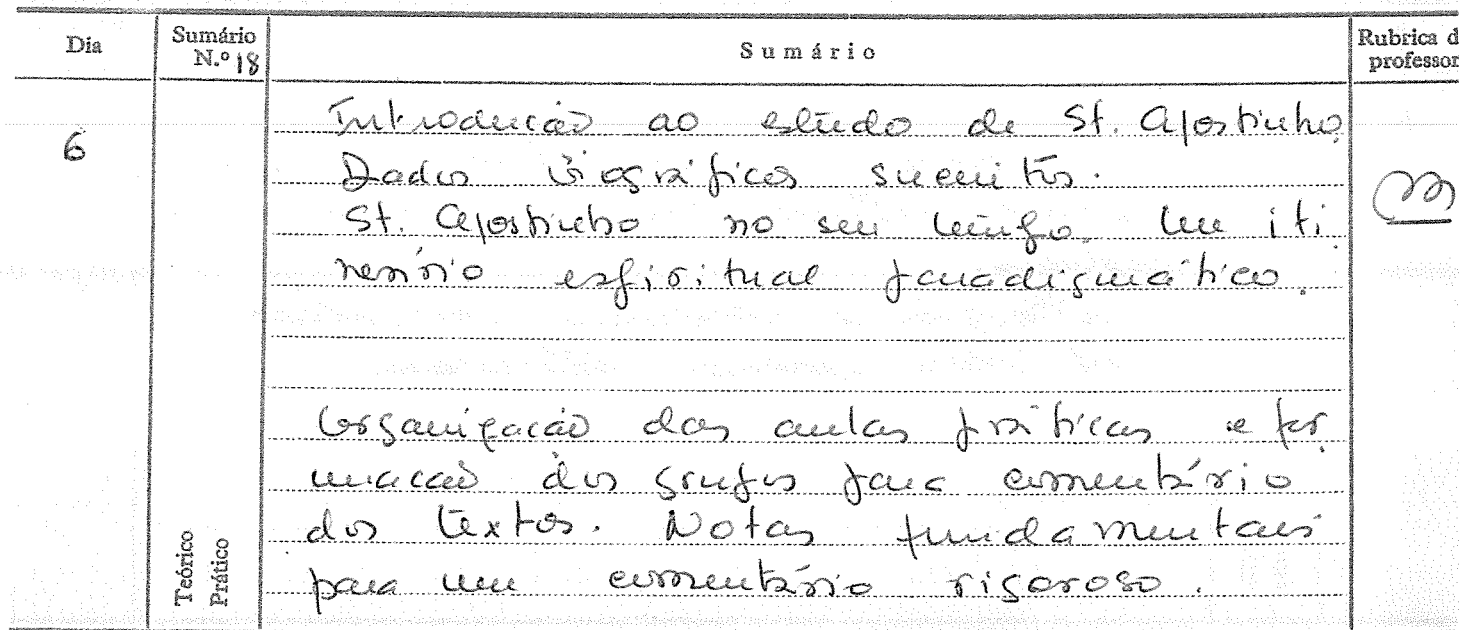 Dia
Sumário N.º 18
Sumário
Rubrica d
professor
6
Introdução ao estudo de St. Agostinho.
Dados biográficos sucintos.
St. Agostinho no seu tempo. Um iti
nerário espiritual paradigmático.
Organização das aulas práticas e for
mação dos grupos para comentário
dos textos. Notas fundamentais
para um comentário rigoroso.
Teórico
Prático